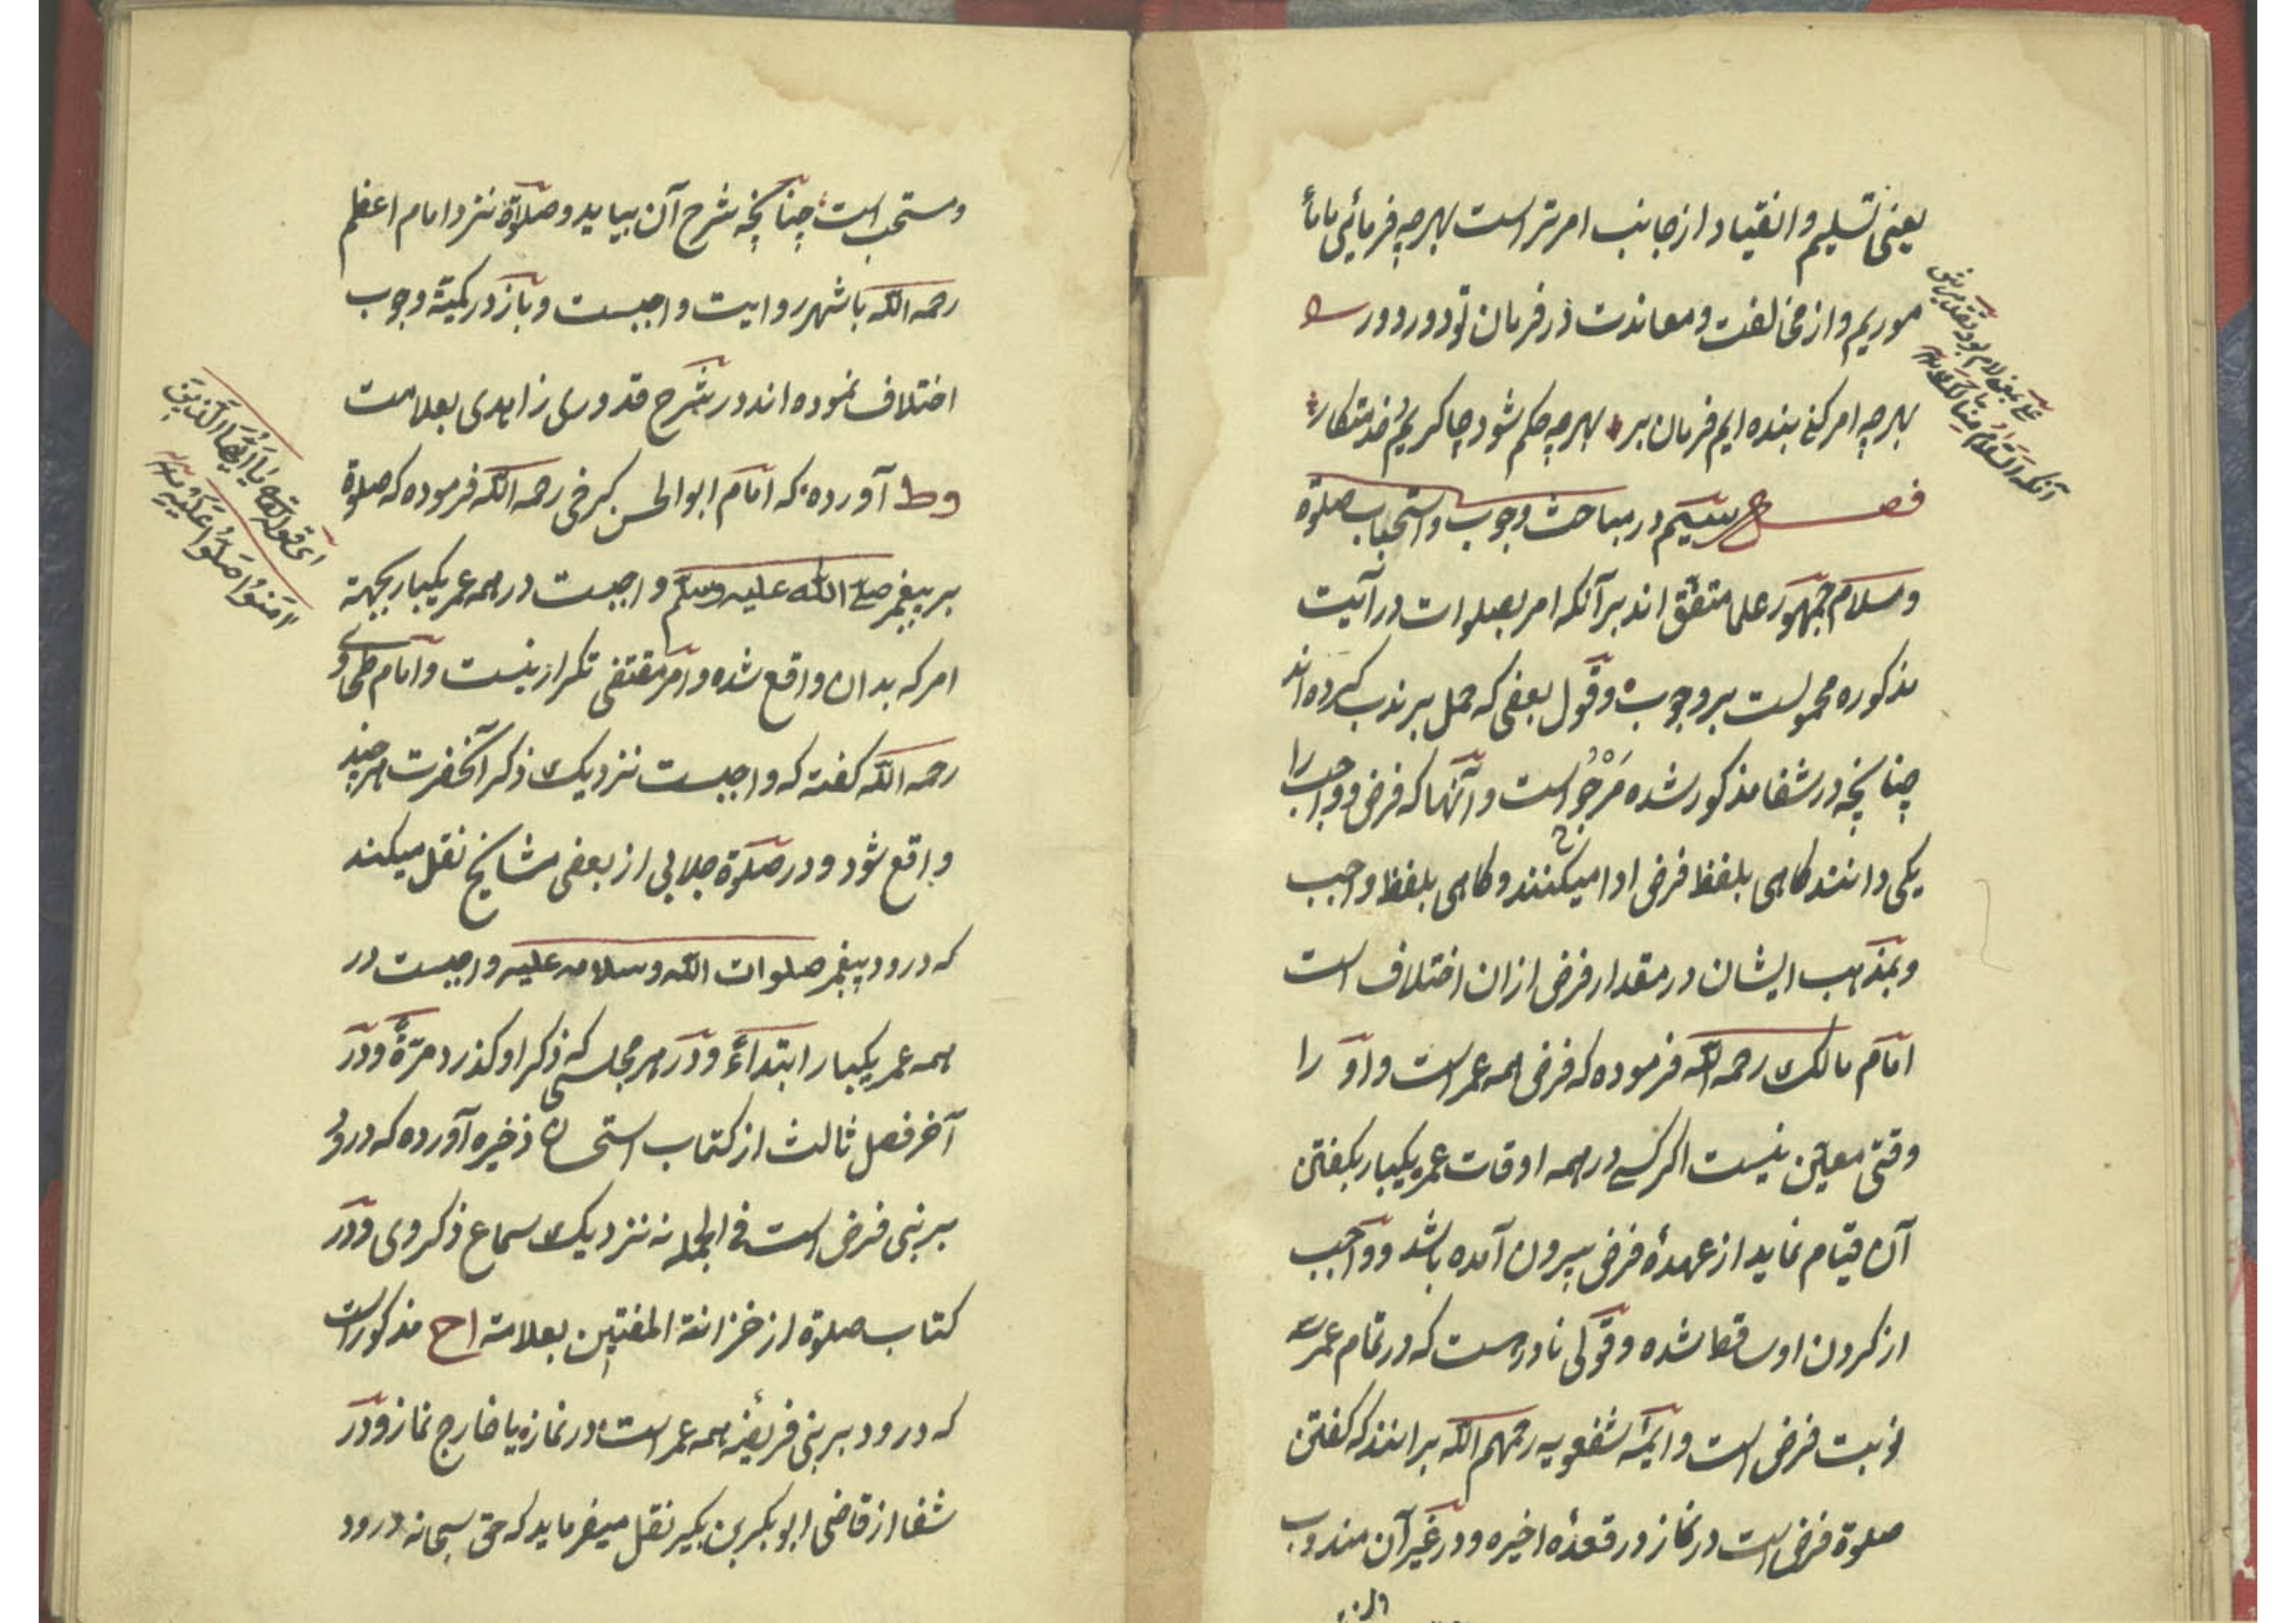 یعنی تسلیم و انقیاد از جانب امر تر است بهر چه فرمائی ما
موریم و از مخالفت و معاندت در فرمان تو دور دور
بهر چه امر کنی بنده ایم فرمان بر بهر چه حکم شود چاکریم خدمتکار
فصل سیم در مباحث وجوب و استحباب صلوة
و سلام جمهور علما متفق اند بر آنکه امر بصلوات در آیت
مذکوره محمولست بر وجوب و قول بعضی که حمل بر ندب کرده اند
چنانچه در شفا مذکور شده مرجو است و آنها که فرض و واجب را
یکی دانند کاهی بلفظ فرض ادا میکنند و کاهی بلفظ واجب
و بمذهب ایشان در مقدار فرض ازان اختلاف است
امام مالک رحمه الله فرموده که فرض همه عمر است و او را
وقتی معین نیست اکر کسی در همه اوقات عمر یکبار بکفتن
آن قیام نماید از عهدهٔ فرض بیرون آمده باشد و واجب
از کردن او ساقط شده و قولی نادر است که در تمام عمر سه
نوبت فرض است و ایمهٔ شفعویه رحمهم الله برانند که کفتن
صلوة فرض است در نماز در قعدهٔ اخیره و در غیر آن مندوب
آنکه السلام منا لک
و مستحب است چنانچه شرح آن بیاید و صلاة نزد امام اعظم
رحمه الله باشهر روایت واجبست و باز در کمیة وجوب
اختلاف نموده اند در شرح قدوری زاهدی بعلامت
وط آورده که امام ابو الحسن کرخی رحمه الله فرموده که صلوة
بر پیغمبر صلی الله علیه وسلم واجبست در همه عمر یکبار بجهة
امر که بدان واقع شده و امر مقتضی تکرار نیست و امام طحاوی
رحمه الله کفته که واجبست نزدیک ذکر آنحضرت هر چند
واقع شود و در صلوة جلابی از بعضی مشایخ نقل میکند
که درود پیغمبر صلوات الله وسلامه علیه واجبست در
همه عمر یکبار ابتداءً و در هر مجلسی که ذکر او کذرد مرّةً و در
آخر فصل ثالث از کتاب استحسان ذخیره آورده که درود
بر نبی فرض است فی الجمله نه نزدیک سماع ذکر وی و در
کتاب صلوة از خزانة المفتین بعلامة اح مذکور است
که درود بر نبی فریضهٔ همه عمر است در نماز یا خارج نماز و در
شفا از قاضی ابو بکر بن بکیر نقل میفرماید که حق سبحانه درود
ای قوله تعالی یا أیها الذین
آمنوا صلوا علیه